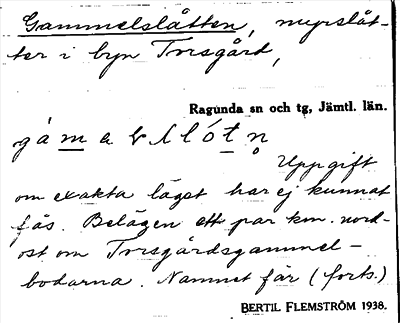 Gammelslåtten, myrslåt-
ter i byn Torsgård,
Ragunda sn och tg, Jämtl. län.
Uppgift
om exakta läget har ej kunnat
fås. Belägen ett par km. nord-
ost om Torsgårdsgammel-
bodarna. Namnet får (forts.)
BERTIL FLEMSTRÖM 1938.